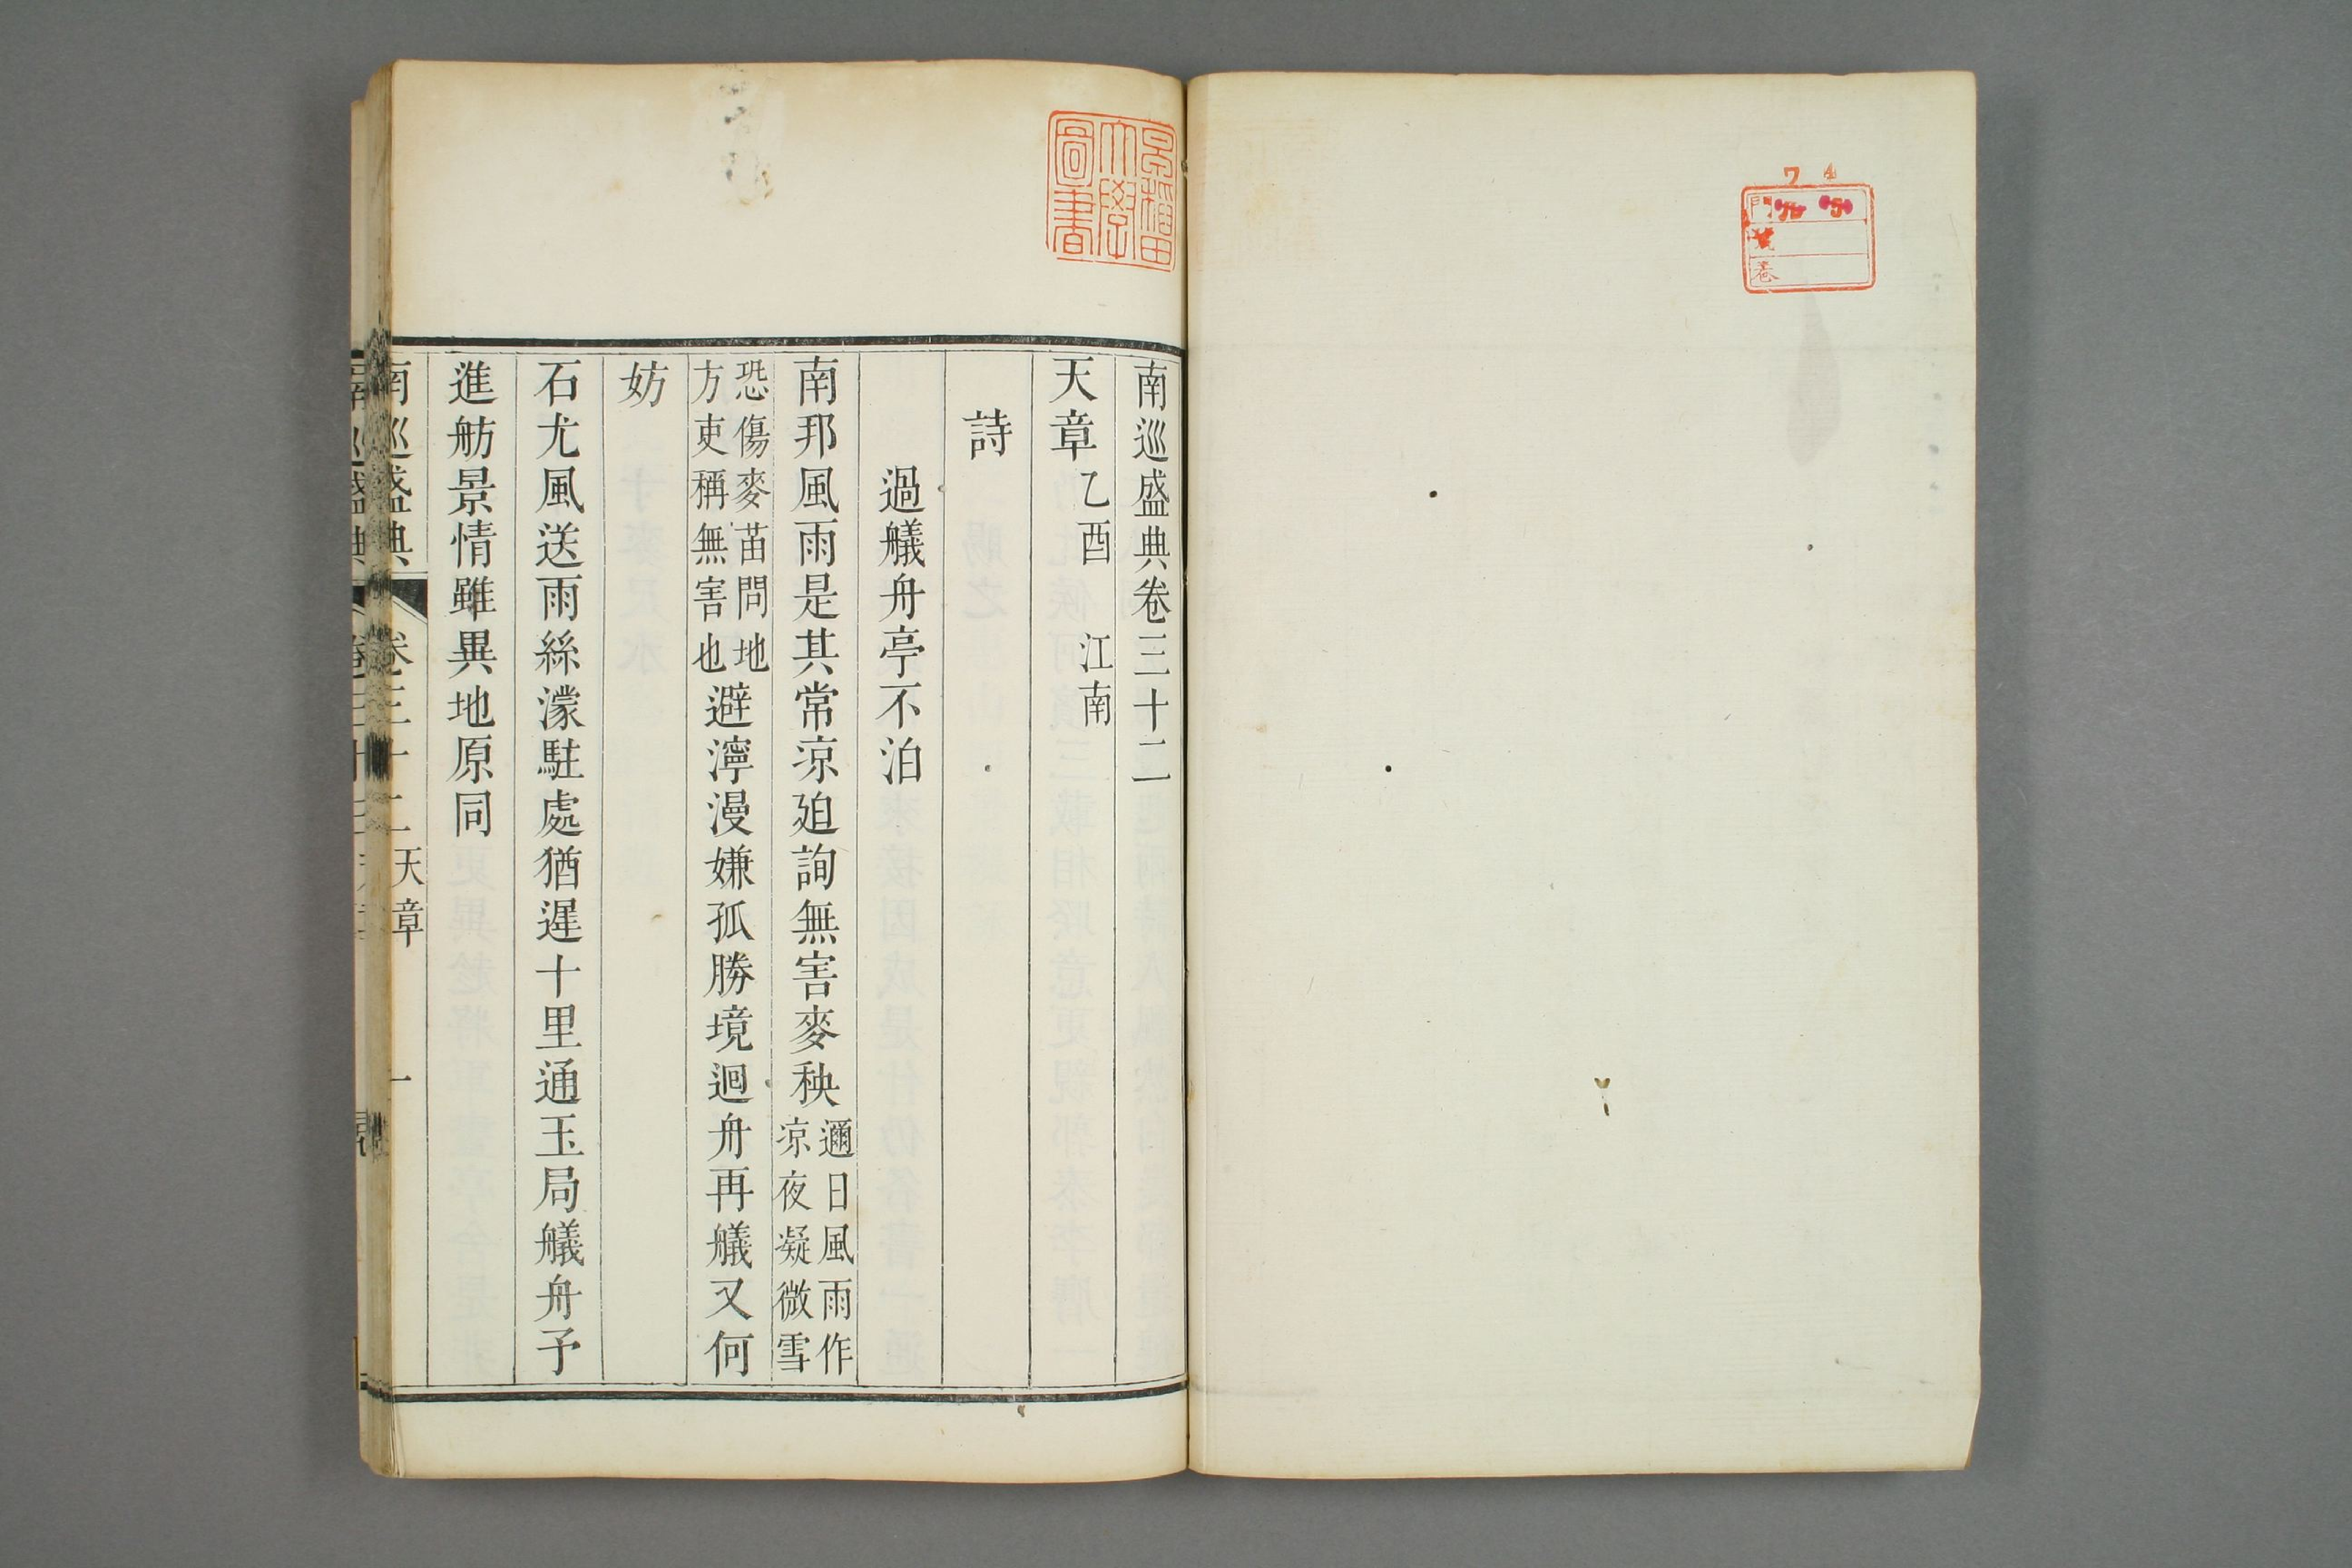 南巡盛典卷三十二
天章乙酉 江南
詩
過艤舟亭不泊
南邦風雨是其常凉廹詢無害麥秧邇日風雨作
凉夜凝微雪
恐傷麥苗問地
方吏稱無害也避濘漫嫌孤勝境迴舟再艤又何
妨
石尤風送雨絲濛駐處猶遲十里通玉局艤舟予
進舫景情雖異地原同
南巡盛典 卷三十二天章 一
早稻田
大學
圖書
7 4
門
號
卷